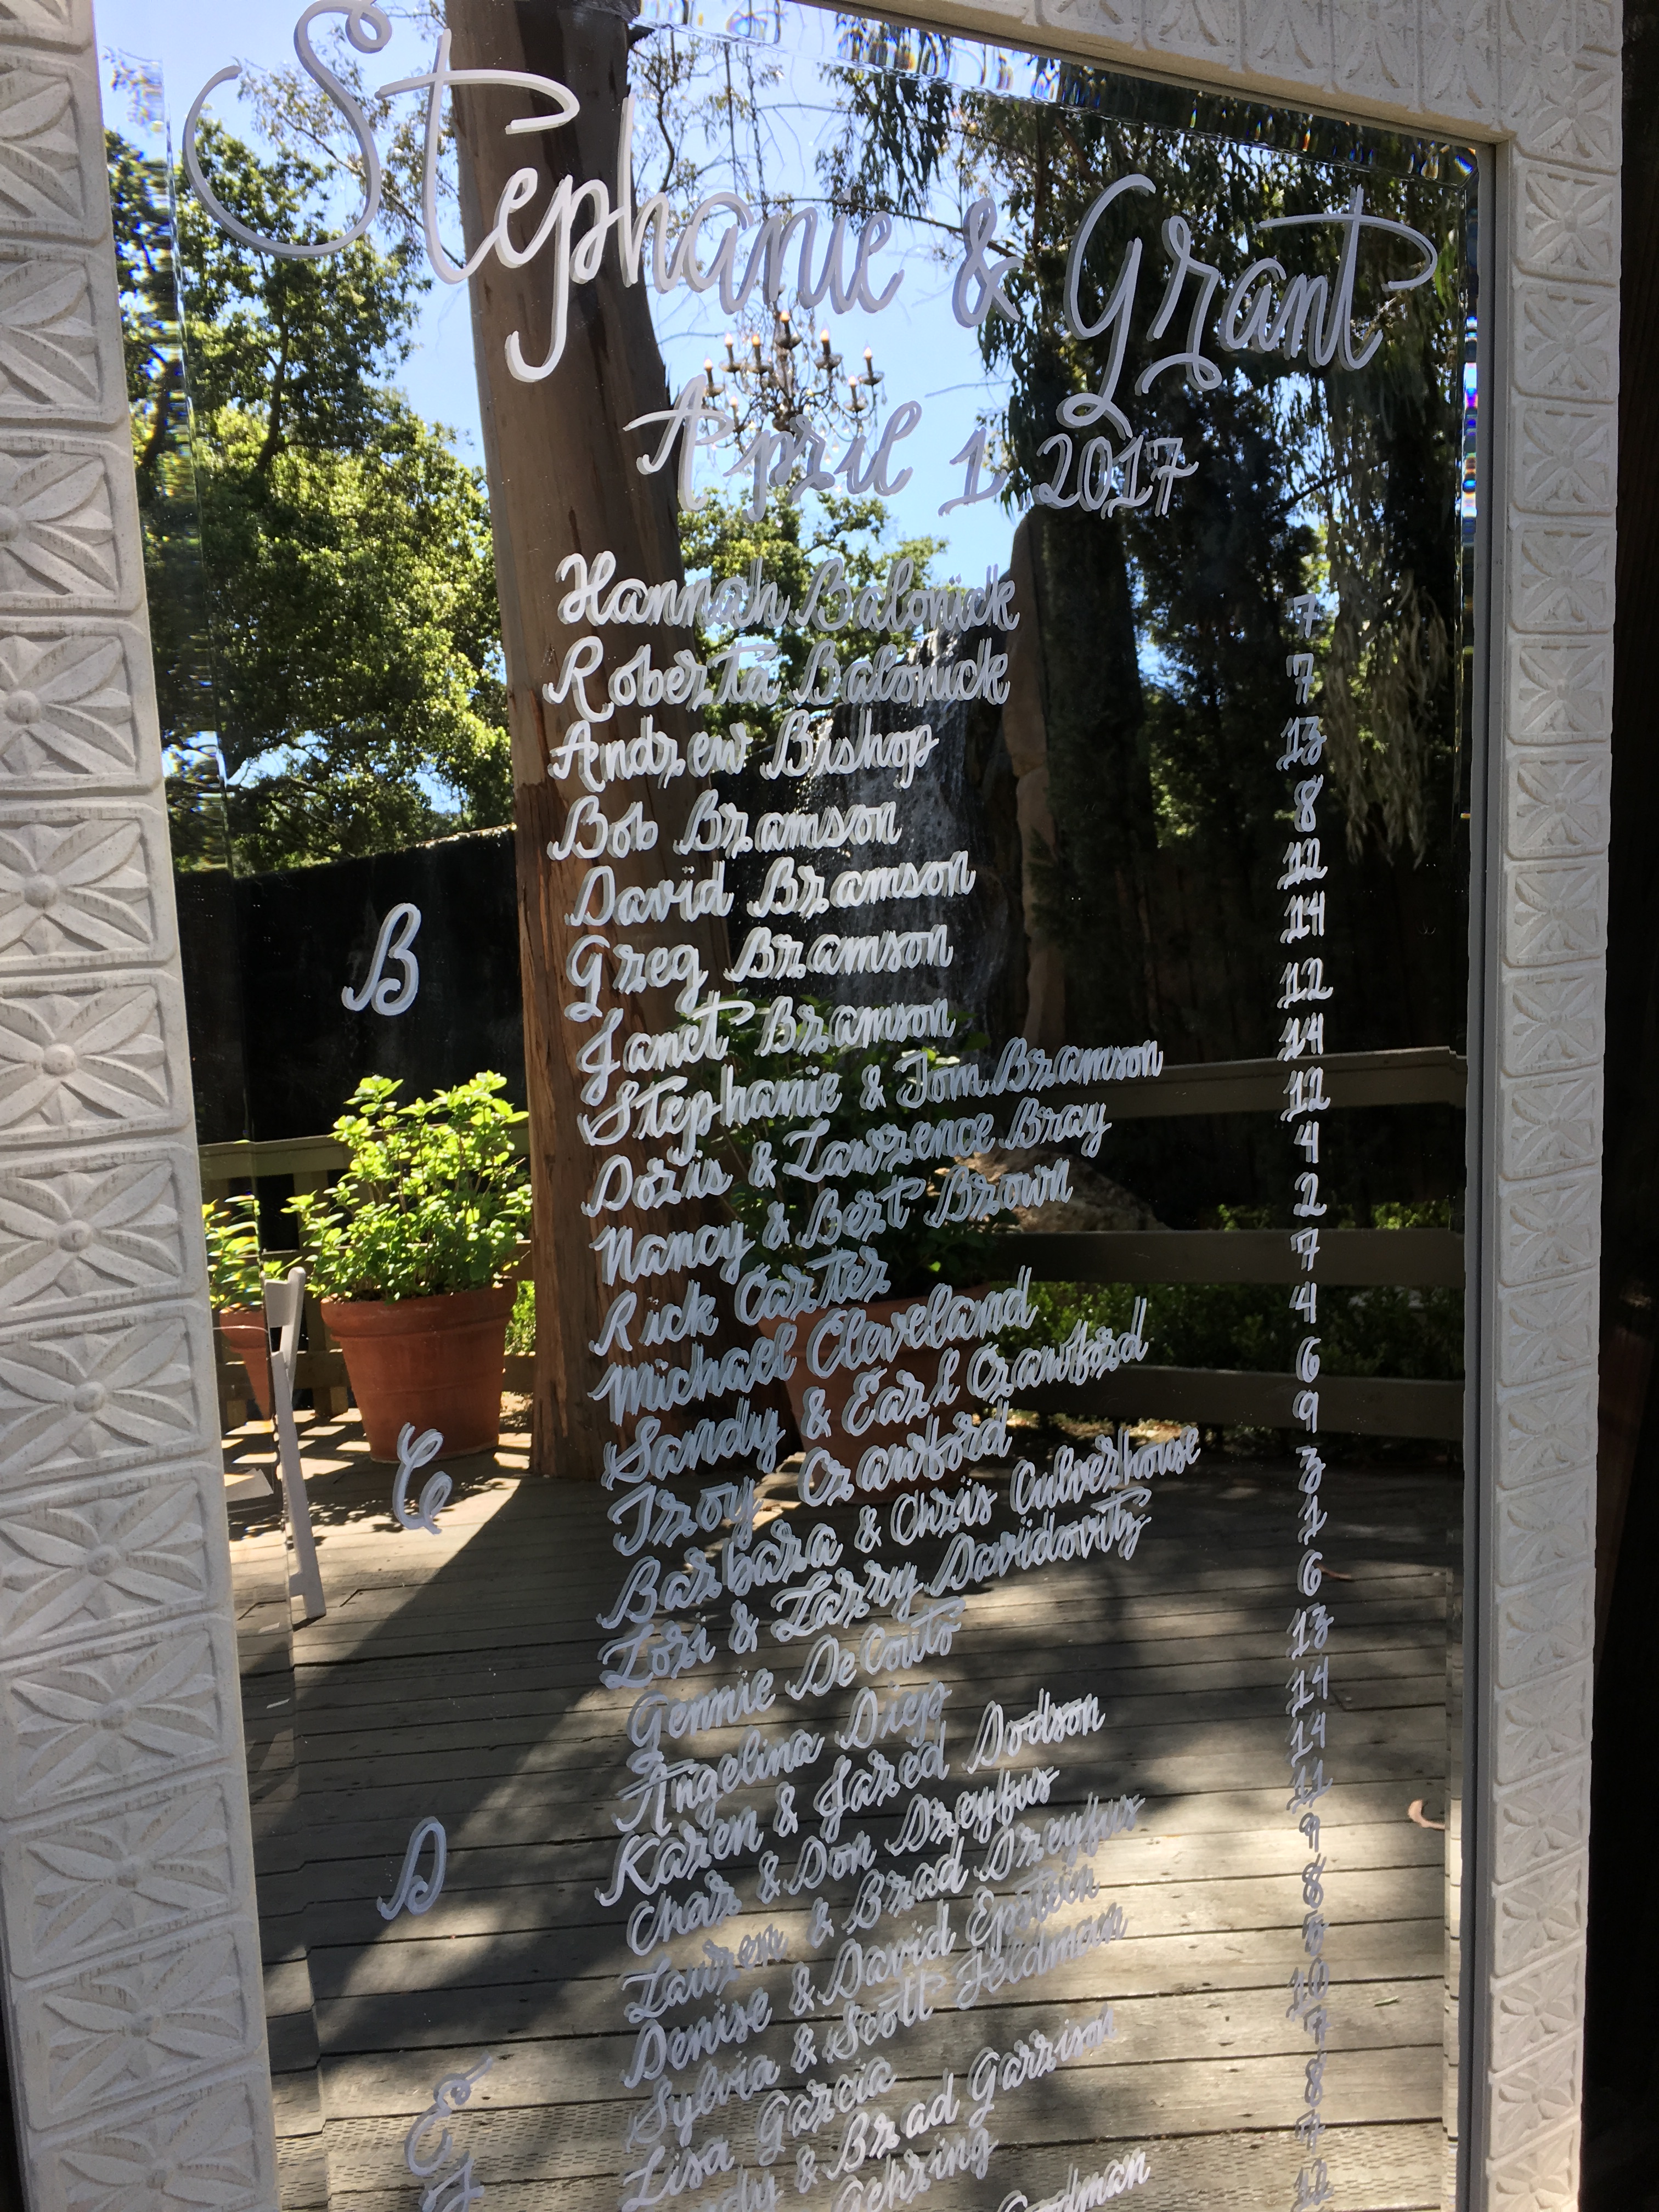 Stephanie & Grant
April 1, 2017
Hannah Balonick 7
Roberta Balonick 7
Andrew Bishop 13
Bob Bramson 8
David Bramson 12
B
Greg Bramson 14
Janet Bramson 12
Stephanie & Tom Bramson 14
Doris & Lawrence Bray 12
Nancy & Bert Brown 4
Rick Carter 2
Michael Cleveland 7
Sandy & Earl Crawford 4
C
Troy Crawford 6
Barbara & Chris Culverhouse 9
Lori & Larry Davidovitz 3
Gennie DeCouto 1
Angelina Diep 6
Karen & Jared Dodson 13
D
Char & Don Dreyfus 14
Lauren & Brad Dreyfus 14
Denise & David Epstein 11
Sylvia & Scott Feldman 9
E
Lisa Garcia 8
& Brad Garrison
10
7
8
7
12